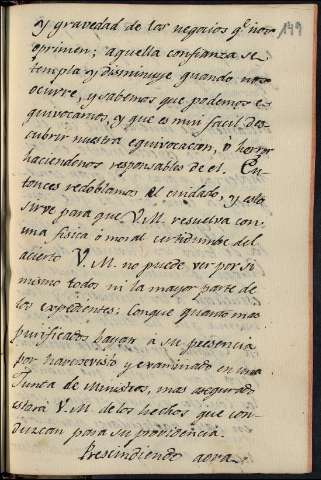 y gravedad de los negocios q.e nos 149
oprimen; aquella confianza se
templa y disminuye quando nos
ocurre, y sabemos que podemos e-
quivocarnos, y que es mui facil des-
cubrir nuestra equivocacion, ó herror
haciendenos responsables de el. En-
tonces redoblamos el cuidado, y esto
sirve para que V.M. resuelva con
una fisica ó moral certidumbre del
acierto V.M. no puede ver por si
mismo todos ni la mayor parte de
los expedientes: conque quanto mas
purificados bayan á su presencia
por haverse visto y examinado en una
Junta de Ministros, mas asegurado
estará V.M. de los hechos que con-
duzcan para su providencia.
Prescindiendo aora